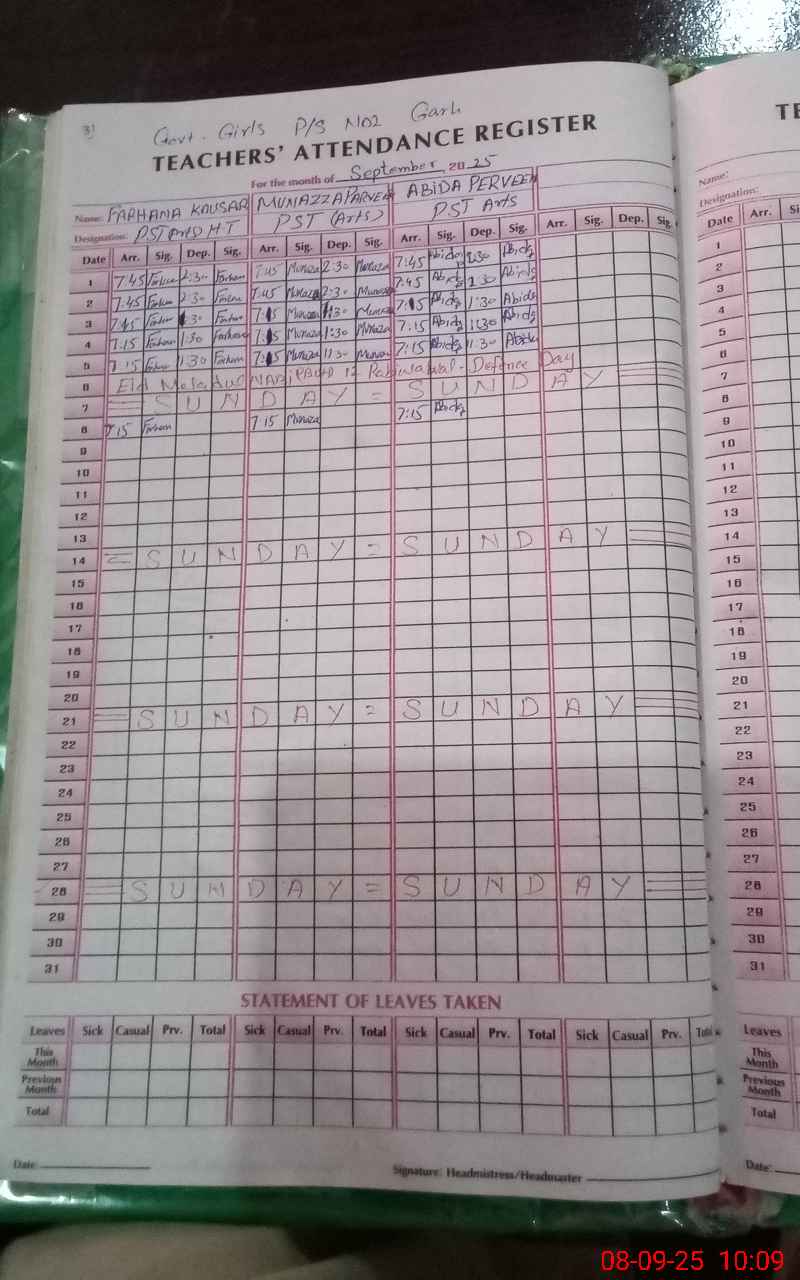 31
Govt. Girls P/S NO2 Garh
TEACHERS' ATTENDANCE REGISTER
For the month of September 2025
Name: FARHANA KAUSAR MUNAZZA PARVEEN ABIDA PERVEEN
Designation: PST (Arts) HT PST (Arts) PST Arts
Date Arr. Sig. Dep. Sig. Arr. Sig. Dep. Sig. Arr. Sig. Dep. Sig. Arr. Sig. Dep. Sig.
1 7:45 Farhan 2:30 Farhan 7:45 Munaza 2:30 Munaza 7:45 Abida 2:30 Abida
2 7:45 Farhan 2:30 Farhan 7:45 Munaza 2:30 Munaza 7:45 Abida 1:30 Abida
3 7:45 Farhan 1:30 Farhan 7:15 Munaza 1:30 Munaza 7:15 Abida 1:30 Abida
4 7:15 Farhan 1:30 Farhana 7:15 Munaza 1:30 Munaza 7:15 Abida 1:30 Abida
5 7:15 Farhan 1:30 Farhan 7:15 Munaza 11:30 Munaza 7:15 Abida 11:30 Abida
6 Eid Melad un Nabi PBUH 12 Rabiulawal - Defence Day
7 = SUNDAY = SUNDAY
8 7:15 Farhan 7:15 Munaza 7:15 Abida
9
10
11
12
13
14 = SUNDAY = SUNDAY
15
16
17
18
19
20
21 = SUNDAY = SUNDAY
22
23
24
25
26
27
28 = SUNDAY = SUNDAY
29
30
31
STATEMENT OF LEAVES TAKEN
Leaves Sick Casual Prv. Total Sick Casual Prv. Total Sick Casual Prv. Total Sick Casual Prv. Total
This Month
Previous Month
Total
Date: Signature: Headmistress/Headmaster
TE
Name:
Designation:
Date Arr. Si
1
2
3
4
5
6
7
8
9
10
11
12
13
14
15
16
17
18
19
20
21
22
23
24
25
26
27
28
29
30
31
Leaves Sick
This Month
Previous Month
Total
Date:
08-09-25 10:09